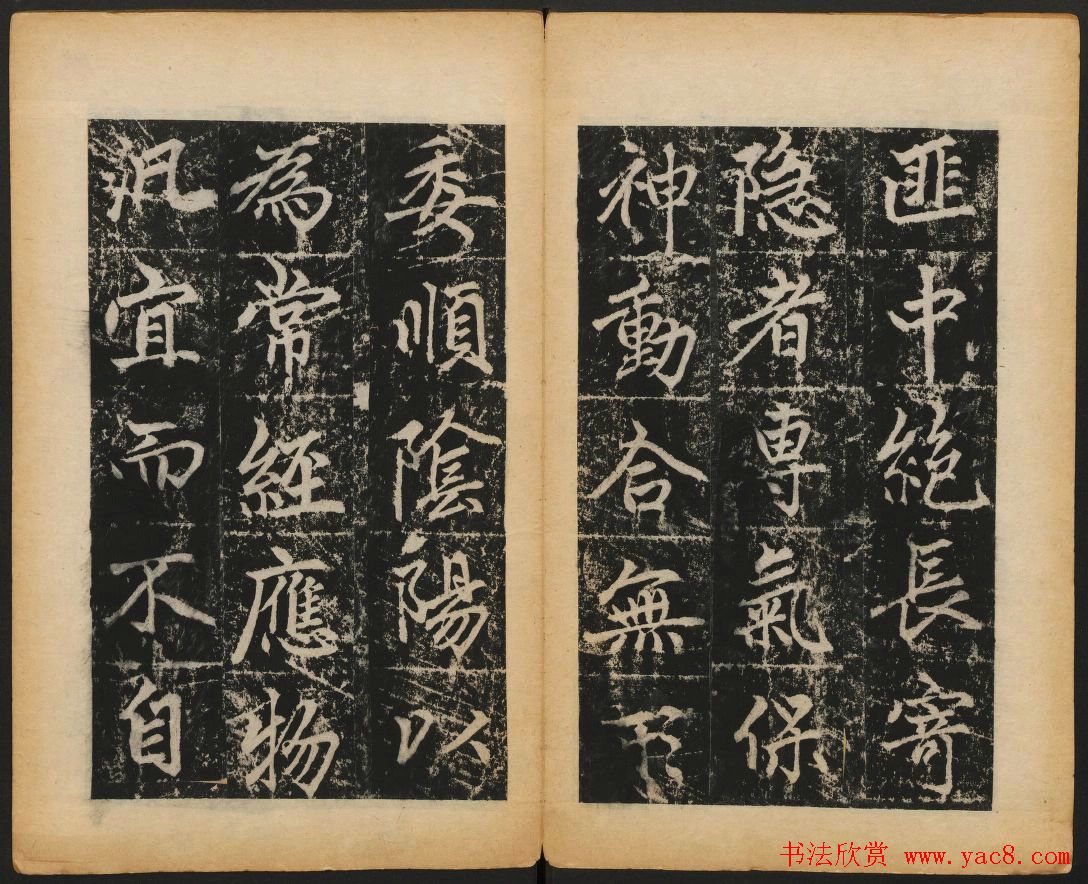 匪中絶長寄
隐者專氣保
神動合無
委順陰陽以
為常經應物
汎宜而不自
书法欣赏 www.yac8.com